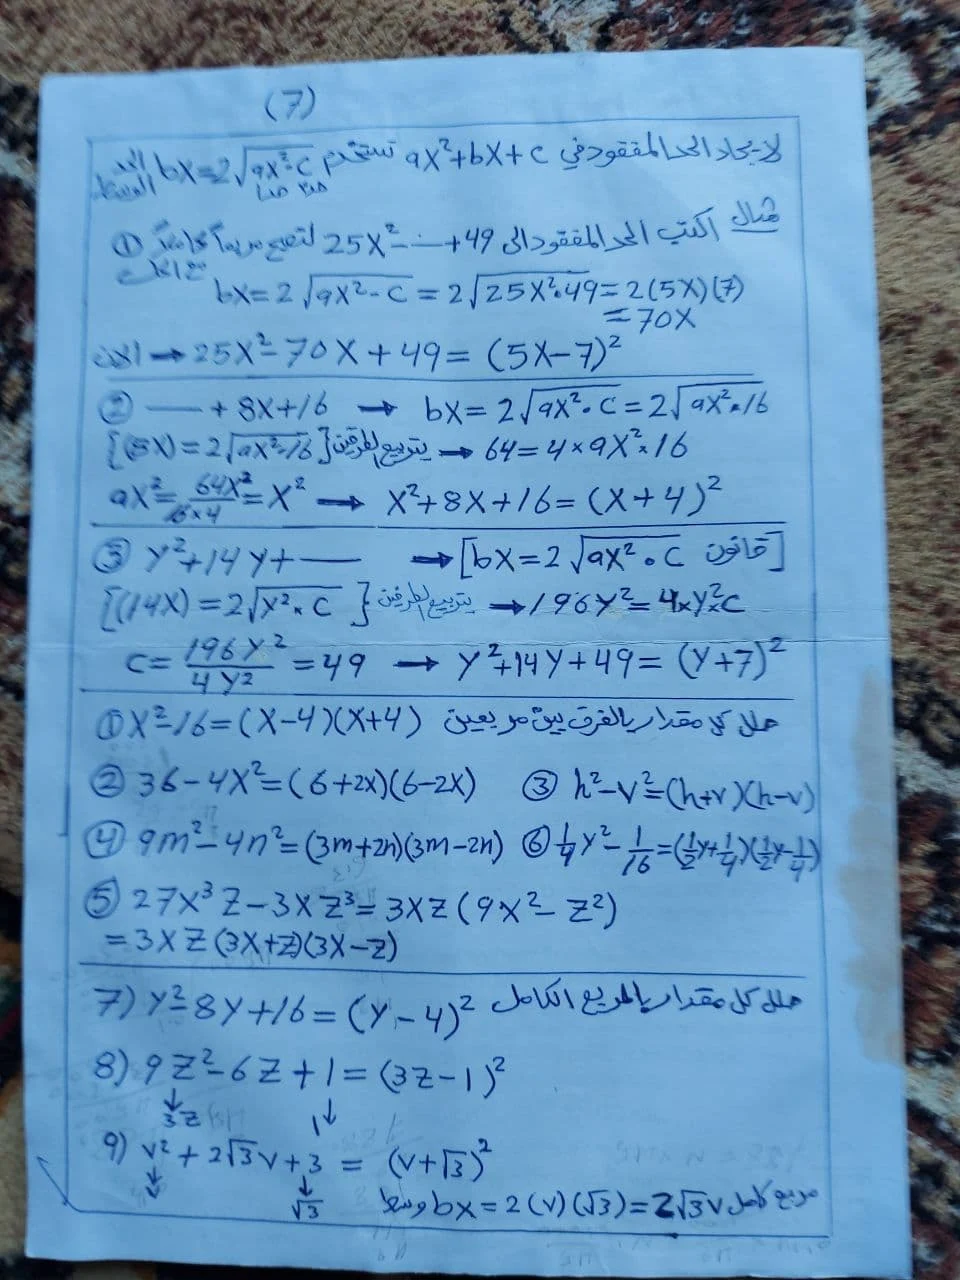 (7)
لايجاد الحد المفقود في ax²+bx+c نستخدم bx=2√ax²·c الحد الوسط
مثال اكتب الحد المفقود الى 25x²-—+49 لتصبح مربعاً كاملاً
① bx=2√ax²-c=2√25x²·49=2(5x)(7)
=70x
الان → 25x²-70x+49=(5x-7)²
② — +8x+16 → bx=2√ax²·c=2√ax²×16
[(8x)=2√ax²·16] بتربيع الطرفين → 64=4×ax²×16
ax²=64x²/16×4=x² → x²+8x+16=(x+4)²
③ y²+14y+— → [bx=2√ax²·c قانون]
[(14x)=2√y²×c} بتربيع الطرفين → 196y²=4×y²×c
c=196y²/4y²=49 → y²+14y+49=(y+7)²
① x²-16=(x-4)(x+4) حلل كل مقدار بالفرق بين مربعين
② 36-4x²=(6+2x)(6-2x) ③ h²-v²=(h+v)(h-v)
④ 9m²-4n²=(3m+2n)(3m-2n) ⑥ 1/4y²-1/16=(1/2y+1/4)(1/2y-1/4)
⑤ 27x³z-3xz³=3xz(9x²-z²)
=3xz(3x+z)(3x-z)
7) y²-8y+16=(y-4)² حلل كل مقدار بالمربع الكامل
8) 9z²-6z+1=(3z-1)²
↓ 3z ↓ 1
9) v²+2√3v+3 = (v+√3)²
↓ v ↓ √3 مربع كامل وسط bx=2(v)(√3)=2√3v